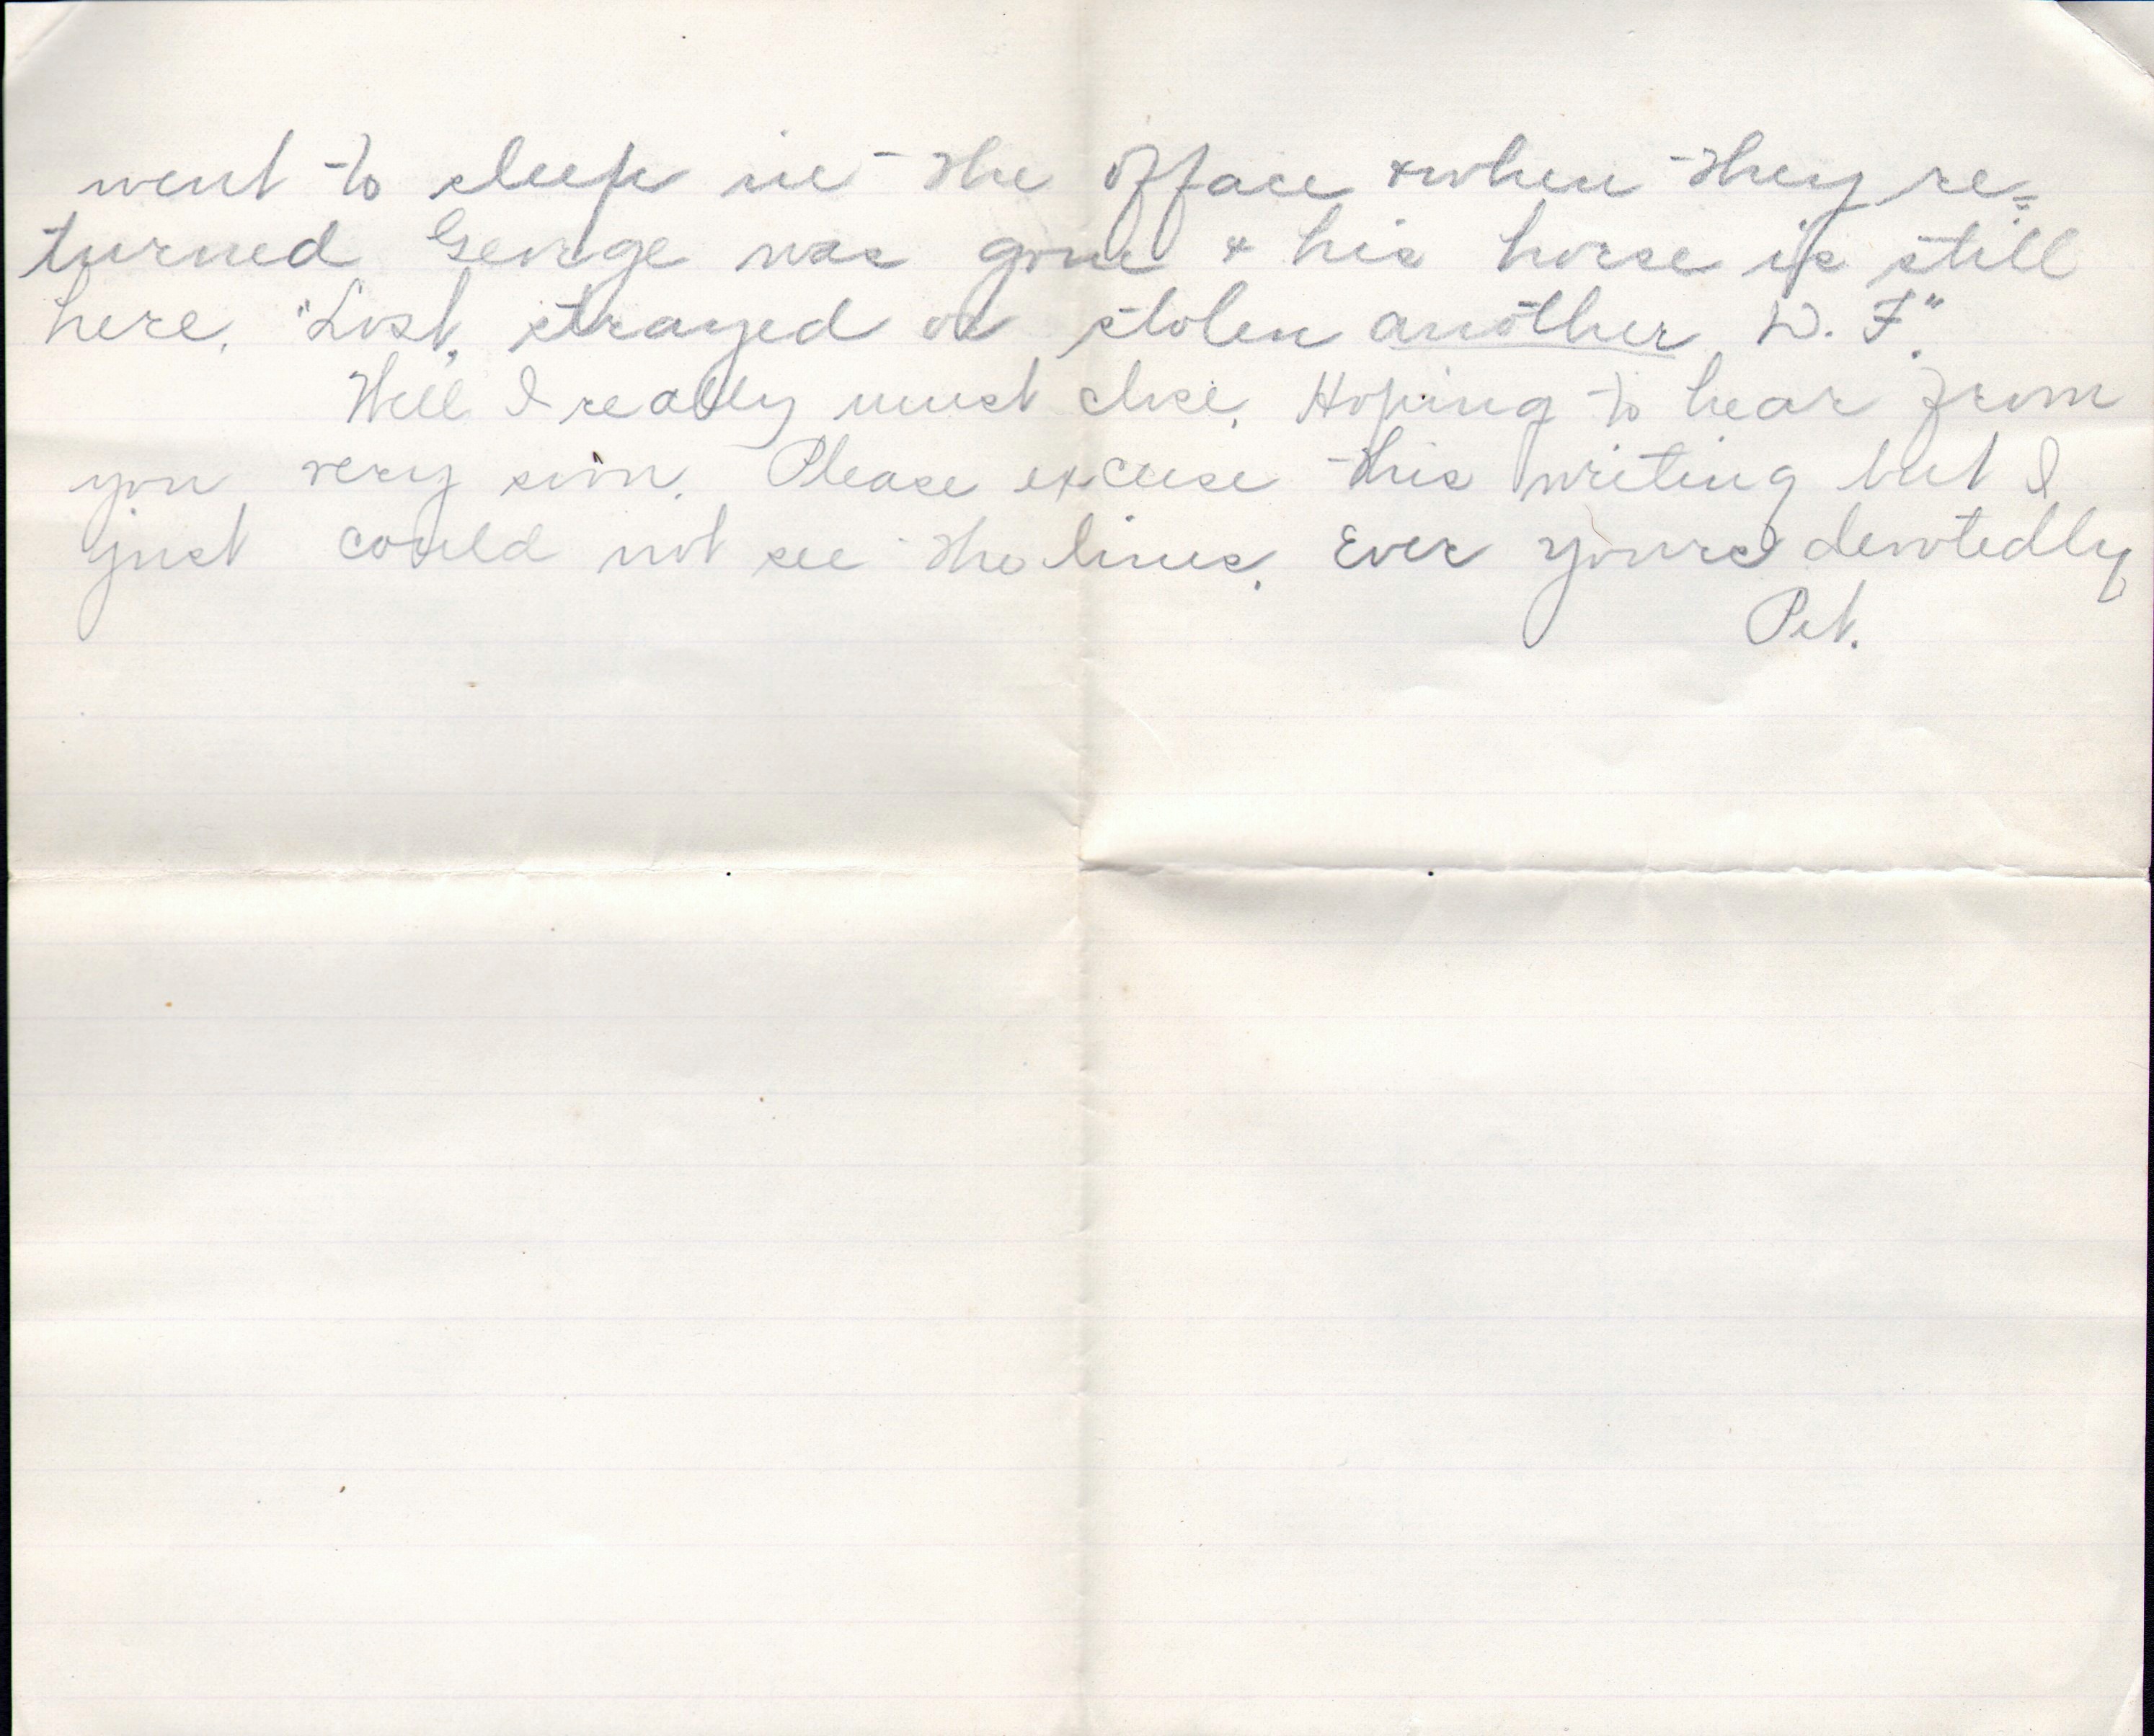 went to sleep in the offace & when they re=
turned George was gone & his horse is still
here. "Lost, strayed or stolen another D. F".
Well I really must close. Hoping to hear from
you very soon. Please excuse this writing but I
just could not see the lines. Ever yours devotedly,
Pet.